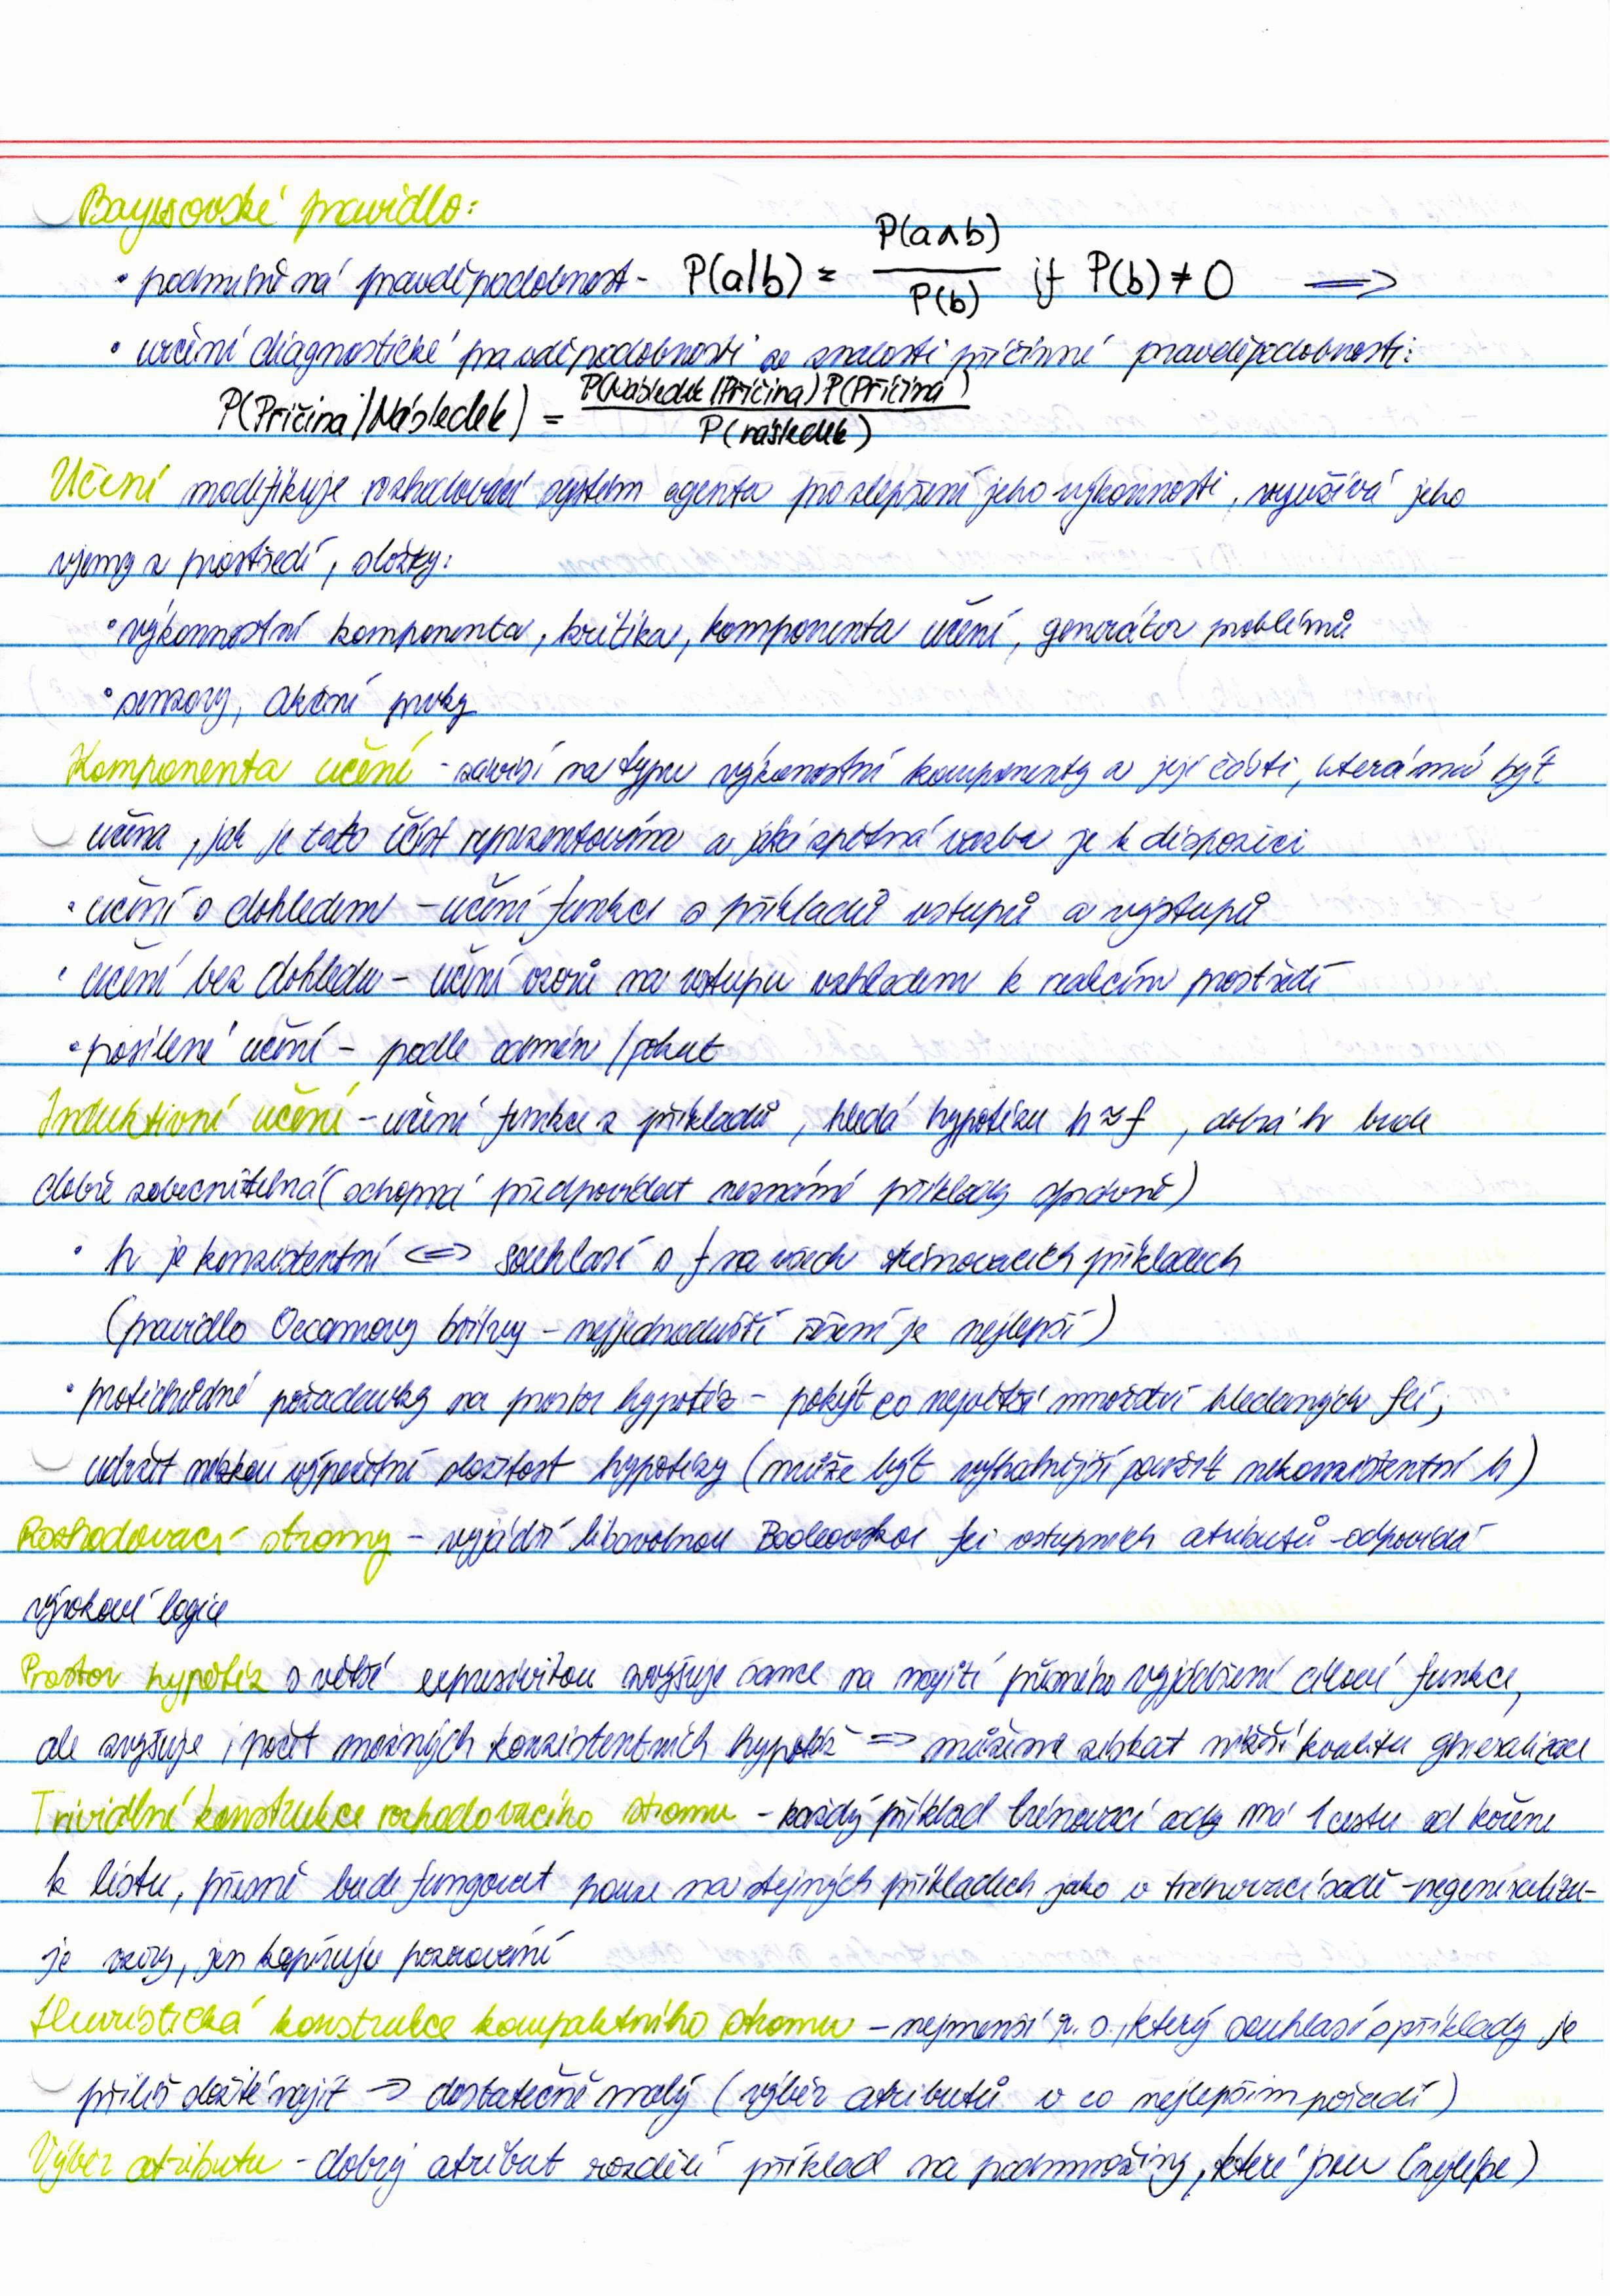 Bayesovské pravidlo:
• podmíněná pravděpodobnost - P(a|b) = P(a∧b) / P(b) if P(b) ≠ 0 ⟹
• určení diagnostické pravděpodobnosti ze znalosti příčinné pravděpodobnosti:
P(Příčina|Následek) = P(Následek|Příčina)P(Příčina) / P(následek)
Učení modifikuje rozhodovací systém agenta pro zlepšení jeho výkonnosti, využívá jeho
vjemy z prostředí, složky:
• výkonnostní komponenta, kritika, komponenta učení, generátor problémů
• senzory, akční prvky
Komponenta učení - závisí na typu výkonostní komponenty a její části, která má být
učena, jak je tato část reprezentována a jaká zpětná vazba je k dispozici
• učení s dohledem - učení funkce z příkladů vstupů a výstupů
• učení bez dohledu - učení vzorů na vstupu vzhledem k reakcím prostředí
• posílené učení - podle odměn/pokut
Induktivní učení - učení funkce z příkladů, hledá hypotézu h ≈ f, dobrá h bude
dobře zobecnitelná (schopná předpovídat neznámé příklady správně)
• h je konzistentní ⟺ souhlasí s f na všech trénovacích příkladech
(pravidlo Occamovy břitvy - nejjednodušší řešení je nejlepší)
• protichůdné požadavky na prostor hypotéz - pokýt co největší množství hledaných fcí;
udržet nízkou výpočetní složitost hypotézy (může být výhodnější použít nekonzistentní h)
Rozhodovací stromy - vyjádří libovolnou Booleovskou fci vstupních atributů - odpovídá
výrokové logice
Prostor hypotéz s větší expresivitou zvyšuje šance na najití přesného vyjádření cílové funkce,
ale zvyšuje i počet možných konzistentních hypotéz ⟹ můžeme získat nižší kvalitu generalizace
Triviální konstrukce rozhodovacího stromu - každý příklad trénovací sady má 1 cestu od kořene
k listu, přesně bude fungovat pouze na stejných příkladech jako v trénovací sadě - negeneralizu-
je vzory, jen kopíruje pozorování
Heuristická konstrukce kompaktního stromu - nejmenší r. s., který souhlasí s příklady je
příliš složité najít → dostatečně malý (výběr atributů v co nejlepším pořadí)
Výběr atributu - dobrý atribut rozdělí příklad na podmnožiny, které jsou (nejlépe)